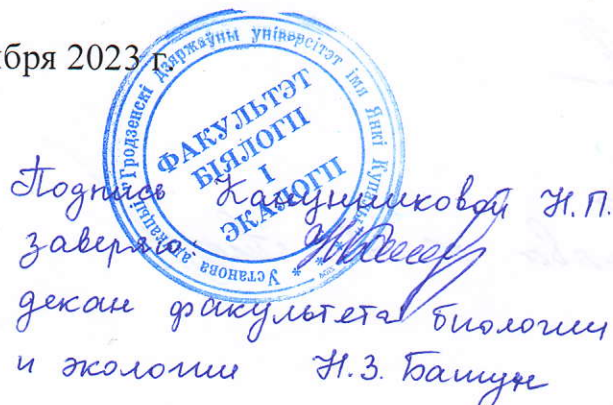 бря 2023 г.
Установа адукацыі Гродзенскі дзяржаўны універсітэт імя Янкі Купалы
ФАКУЛЬТЭТ
БІЯЛОГІІ
І
ЭКАЛОГІІ
Подпись Канунниковой Н.П.
заверяю
декан факультета биологии
и экологии Н.З. Башун